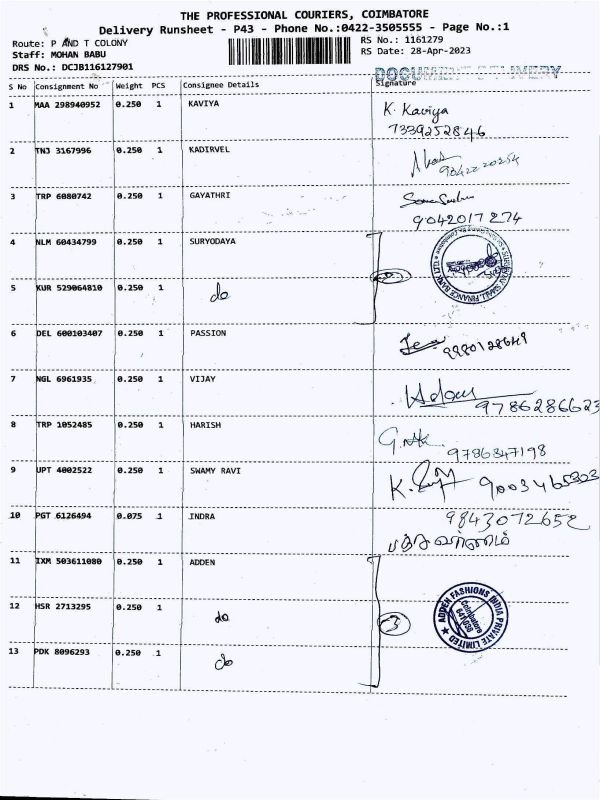 THE PROFESSIONAL COURIERS, COIMBATORE
Delivery Runsheet - P43 - Phone No.:0422-3505555 - Page No.:1
Route: P AND T COLONY
Staff: MOHAN BABU
DRS No.: DCJB116127901
RS No.: 1161279
RS Date: 28-Apr-2023
DOCUMENT DELIVERY
S No Consignment No Weight PCS Consignee Details Signature
1 MAA 298940952 0.250 1 KAVIYA K. Kaviya
7339252846
2 TNJ 3167996 0.250 1 KADIRVEL
9842220254
3 TRP 6080742 0.250 1 GAYATHRI
9042017274
4 NLM 60434799 0.250 1 SURYODAYA
5 KUR 529064810 0.250 1 do
6 DEL 600103407 0.250 1 PASSION 9980128649
7 NGL 6961935 0.250 1 VIJAY
9786286623
8 TRP 1052485 0.250 1 HARISH
9786847198
9 UPT 4002522 0.250 1 SWAMY RAVI K. 9003465303
10 PGT 6126494 0.075 1 INDRA 9843072652
11 IXM 503611080 0.250 1 ADDEN
12 HSR 2713295 0.250 1 do 3
ADDEN FASHIONS INDIA PRIVATE LIMITED
Coimbatore
641038
13 PDK 8096293 0.250 1 do